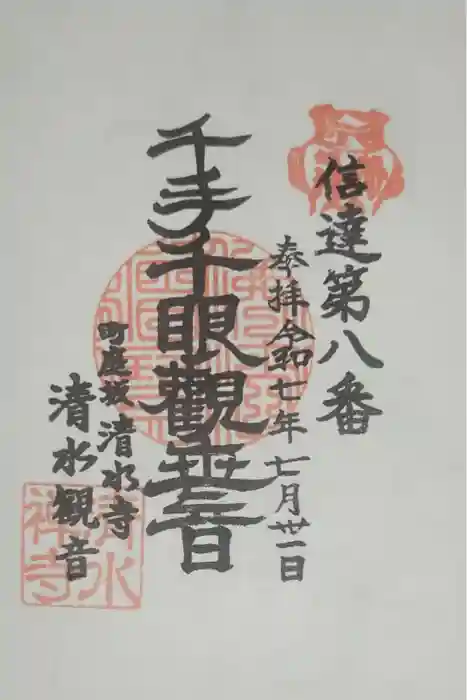 信達第八番
奉拝令和七年七月卅一日
千手千眼觀世音
町庭坂清水寺
清水観音
清水
禅寺